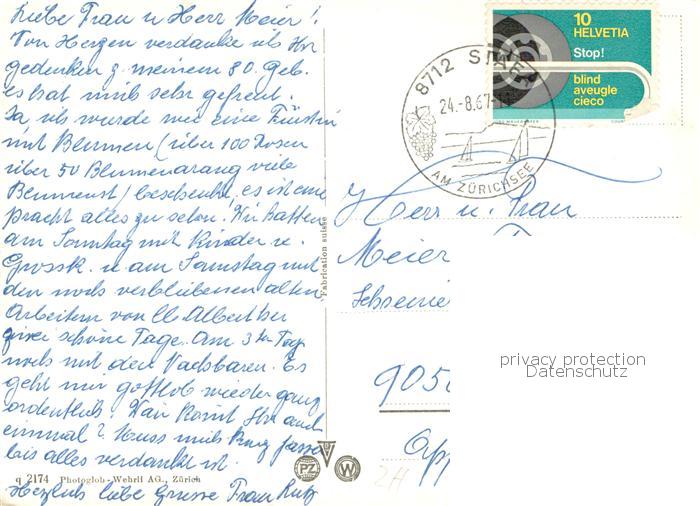 Liebe Frau u Herr Meier!
Von Herzen verdanke ich Ihr
gedenken z. meinem 80. Geb.
es hat mich sehr gefreut.
Ja ich wurde wie eine Fürstin
mit Blumen (über 100 Rosen
über 50 Blumenarang viele
Blumenst) beschenkt, es ist eine
pracht alles zu sehen. Wir hatten
am Sonntag mit Kinder u.
Grossk. u am Samstag mit
den noch verbliebenen alten
Arbeitern von
zwei schöne Tage. Am 3ten Tag
noch mit den Nachbaren. Es
geht mir gottlob wieder ganz
ordentlich. Wan komt Ihr auch
einmal? Muss mich kurz fassen
bis alles verdankt ist.
Herzlich liebe Grüsse Frau Rutz
q 2174 Photoglob-Wehrli AG., Zürich
Fabrication suisse
PZ W
10
HELVETIA
Stop!
blind
aveugle
cieco
8712
24.-8.67
AM ZÜRICHSEE
Herr u. Frau
Meier
Schreine
905
App
2H
privacy protection
Datenschutz